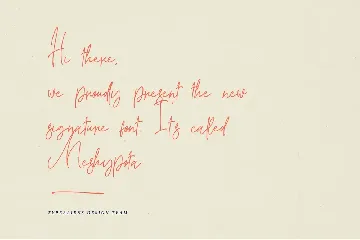 Hi there,
we proudly present the new
signature font. It's called
Meshypota
DESIGN TEAM